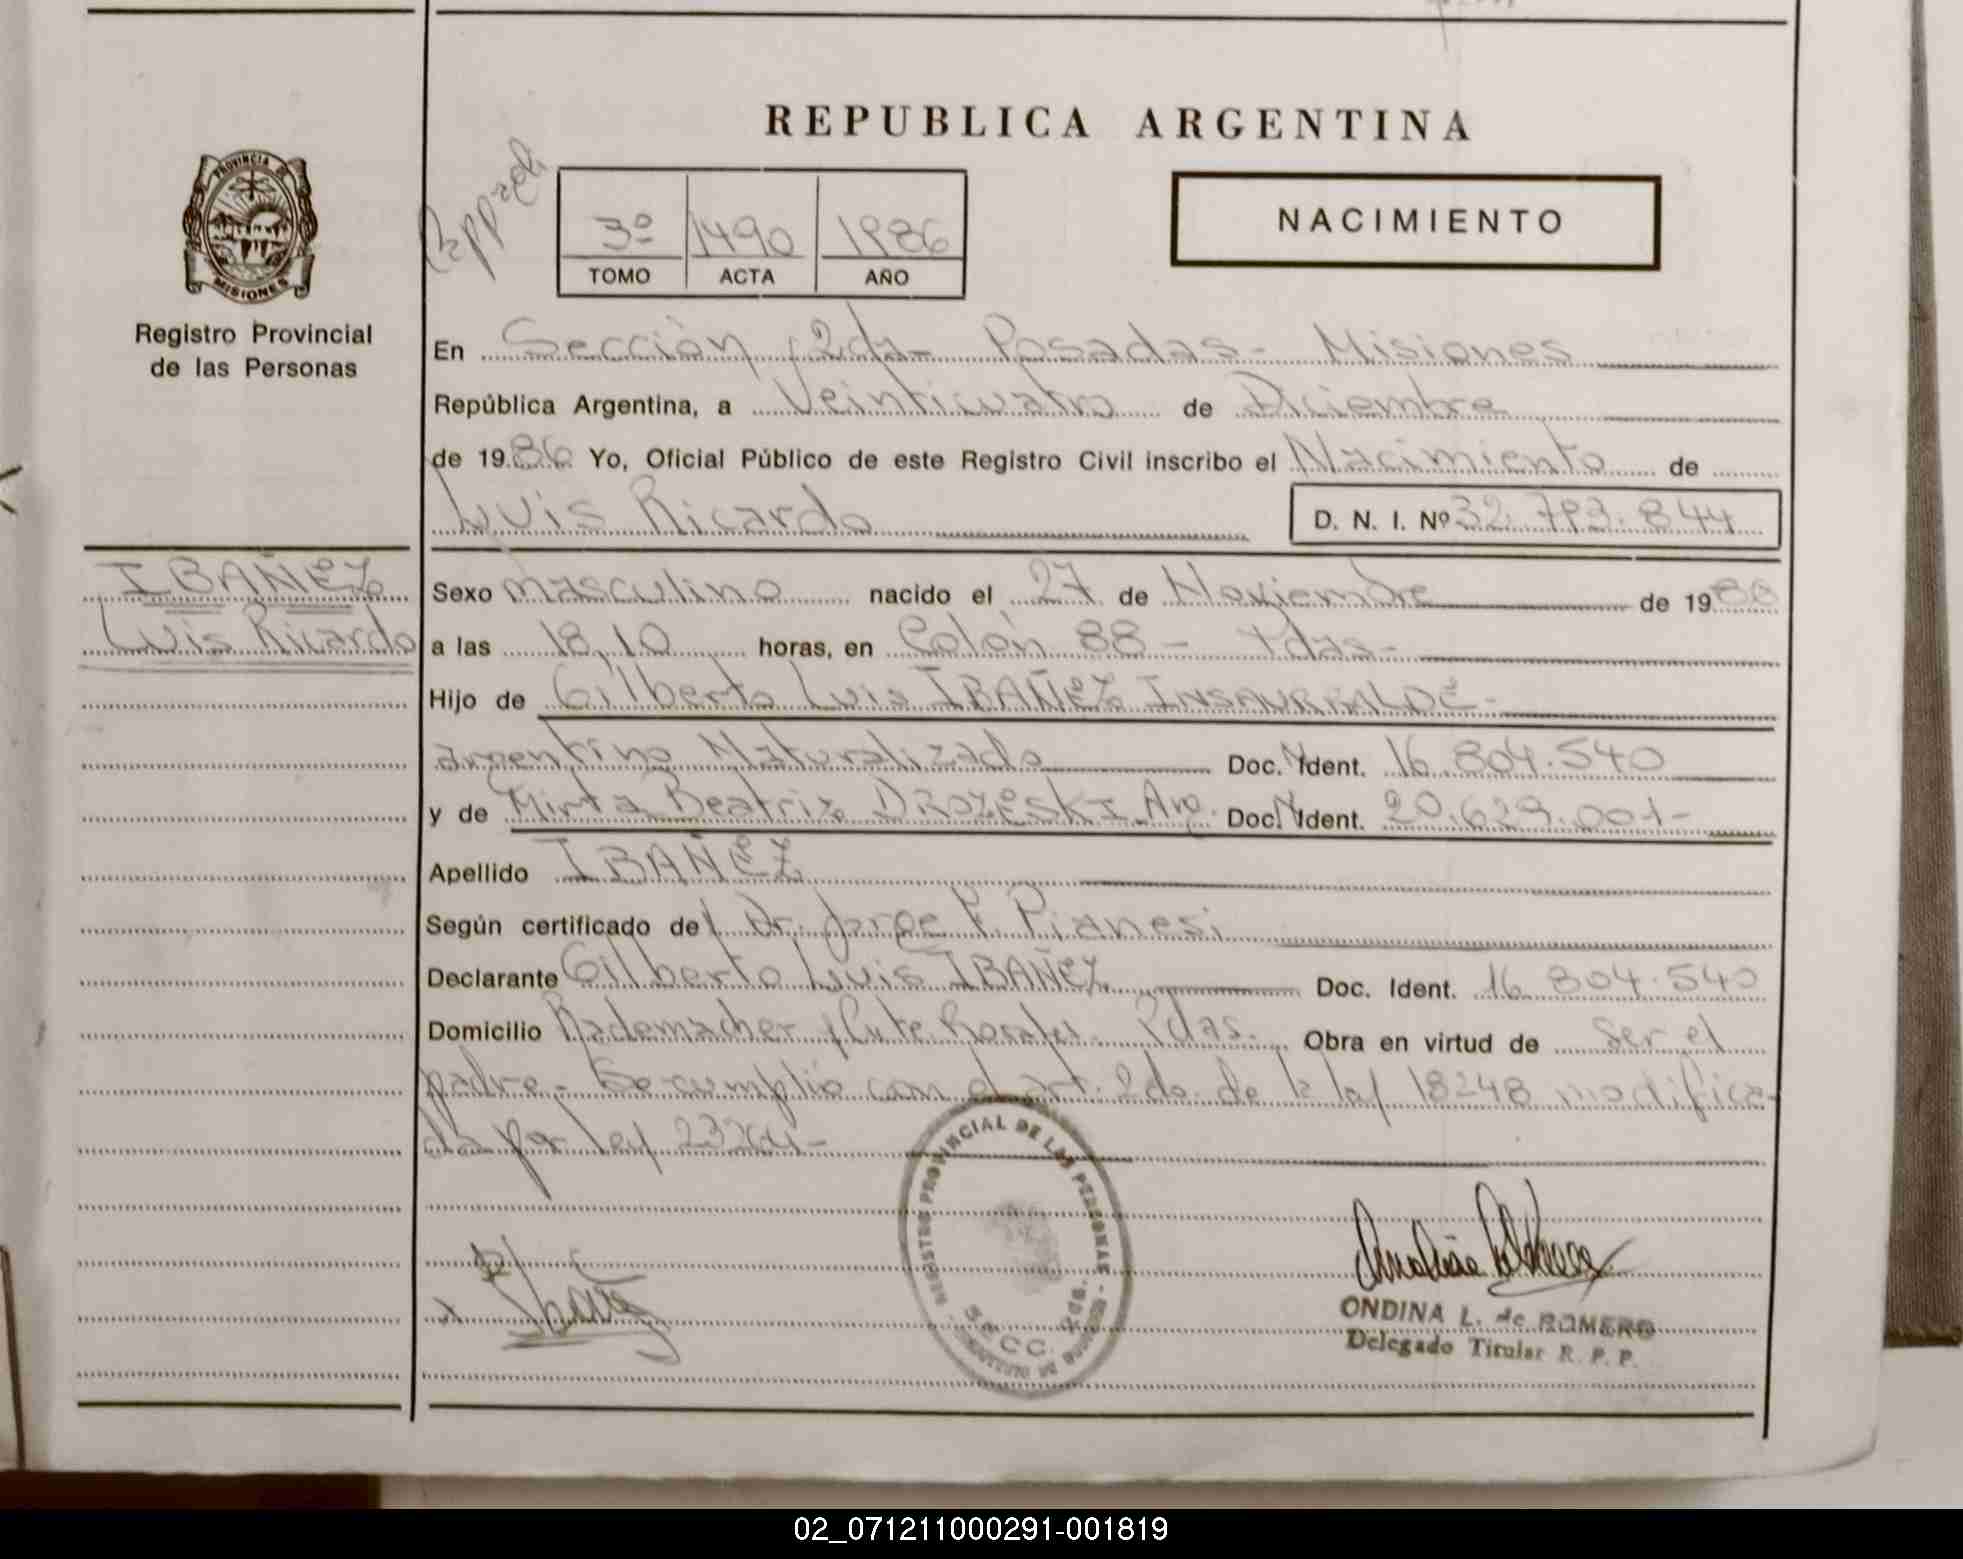 REPUBLICA ARGENTINA
PROVINCIA DE
MISIONES
Registro Provincial
de las Personas
3º 1490 1986
TOMO ACTA AÑO
NACIMIENTO
En Sección 2da - Posadas - Misiones
República Argentina, a Veinticuatro de Diciembre
de 1986 Yo, Oficial Público de este Registro Civil inscribo el Nacimiento de
Luis Ricardo D. N. I. Nº 32.793.844
IBAÑEZ
Luis Ricardo
Sexo masculino nacido el 27 de Noviembre de 1986
a las 18,10 horas, en Colón 88 - Pdas-
Hijo de Gilberto Luis IBAÑEZ INSAURRALDE-
argentino Naturalizado Doc. Ident. 16.804.540
y de Mirta Beatriz DROZESKI Arg. Doc. Ident. 20.629.001-
Apellido IBAÑEZ
Según certificado de Dr. Jorge P. Pianesi
Declarante Gilberto Luis IBAÑEZ Doc. Ident. 16.804.540
Domicilio Rademacher y Pdas. Obra en virtud de ser el
padre - Se cumplió con el art. 2do. de la ley 18248 modifica-
da por ley 23264-
REGISTRO PROVINCIAL DE LAS PERSONAS
SECC.
ONDINA L. de ROMERO
Delegado Titular R. P. P.
02_071211000291-001819